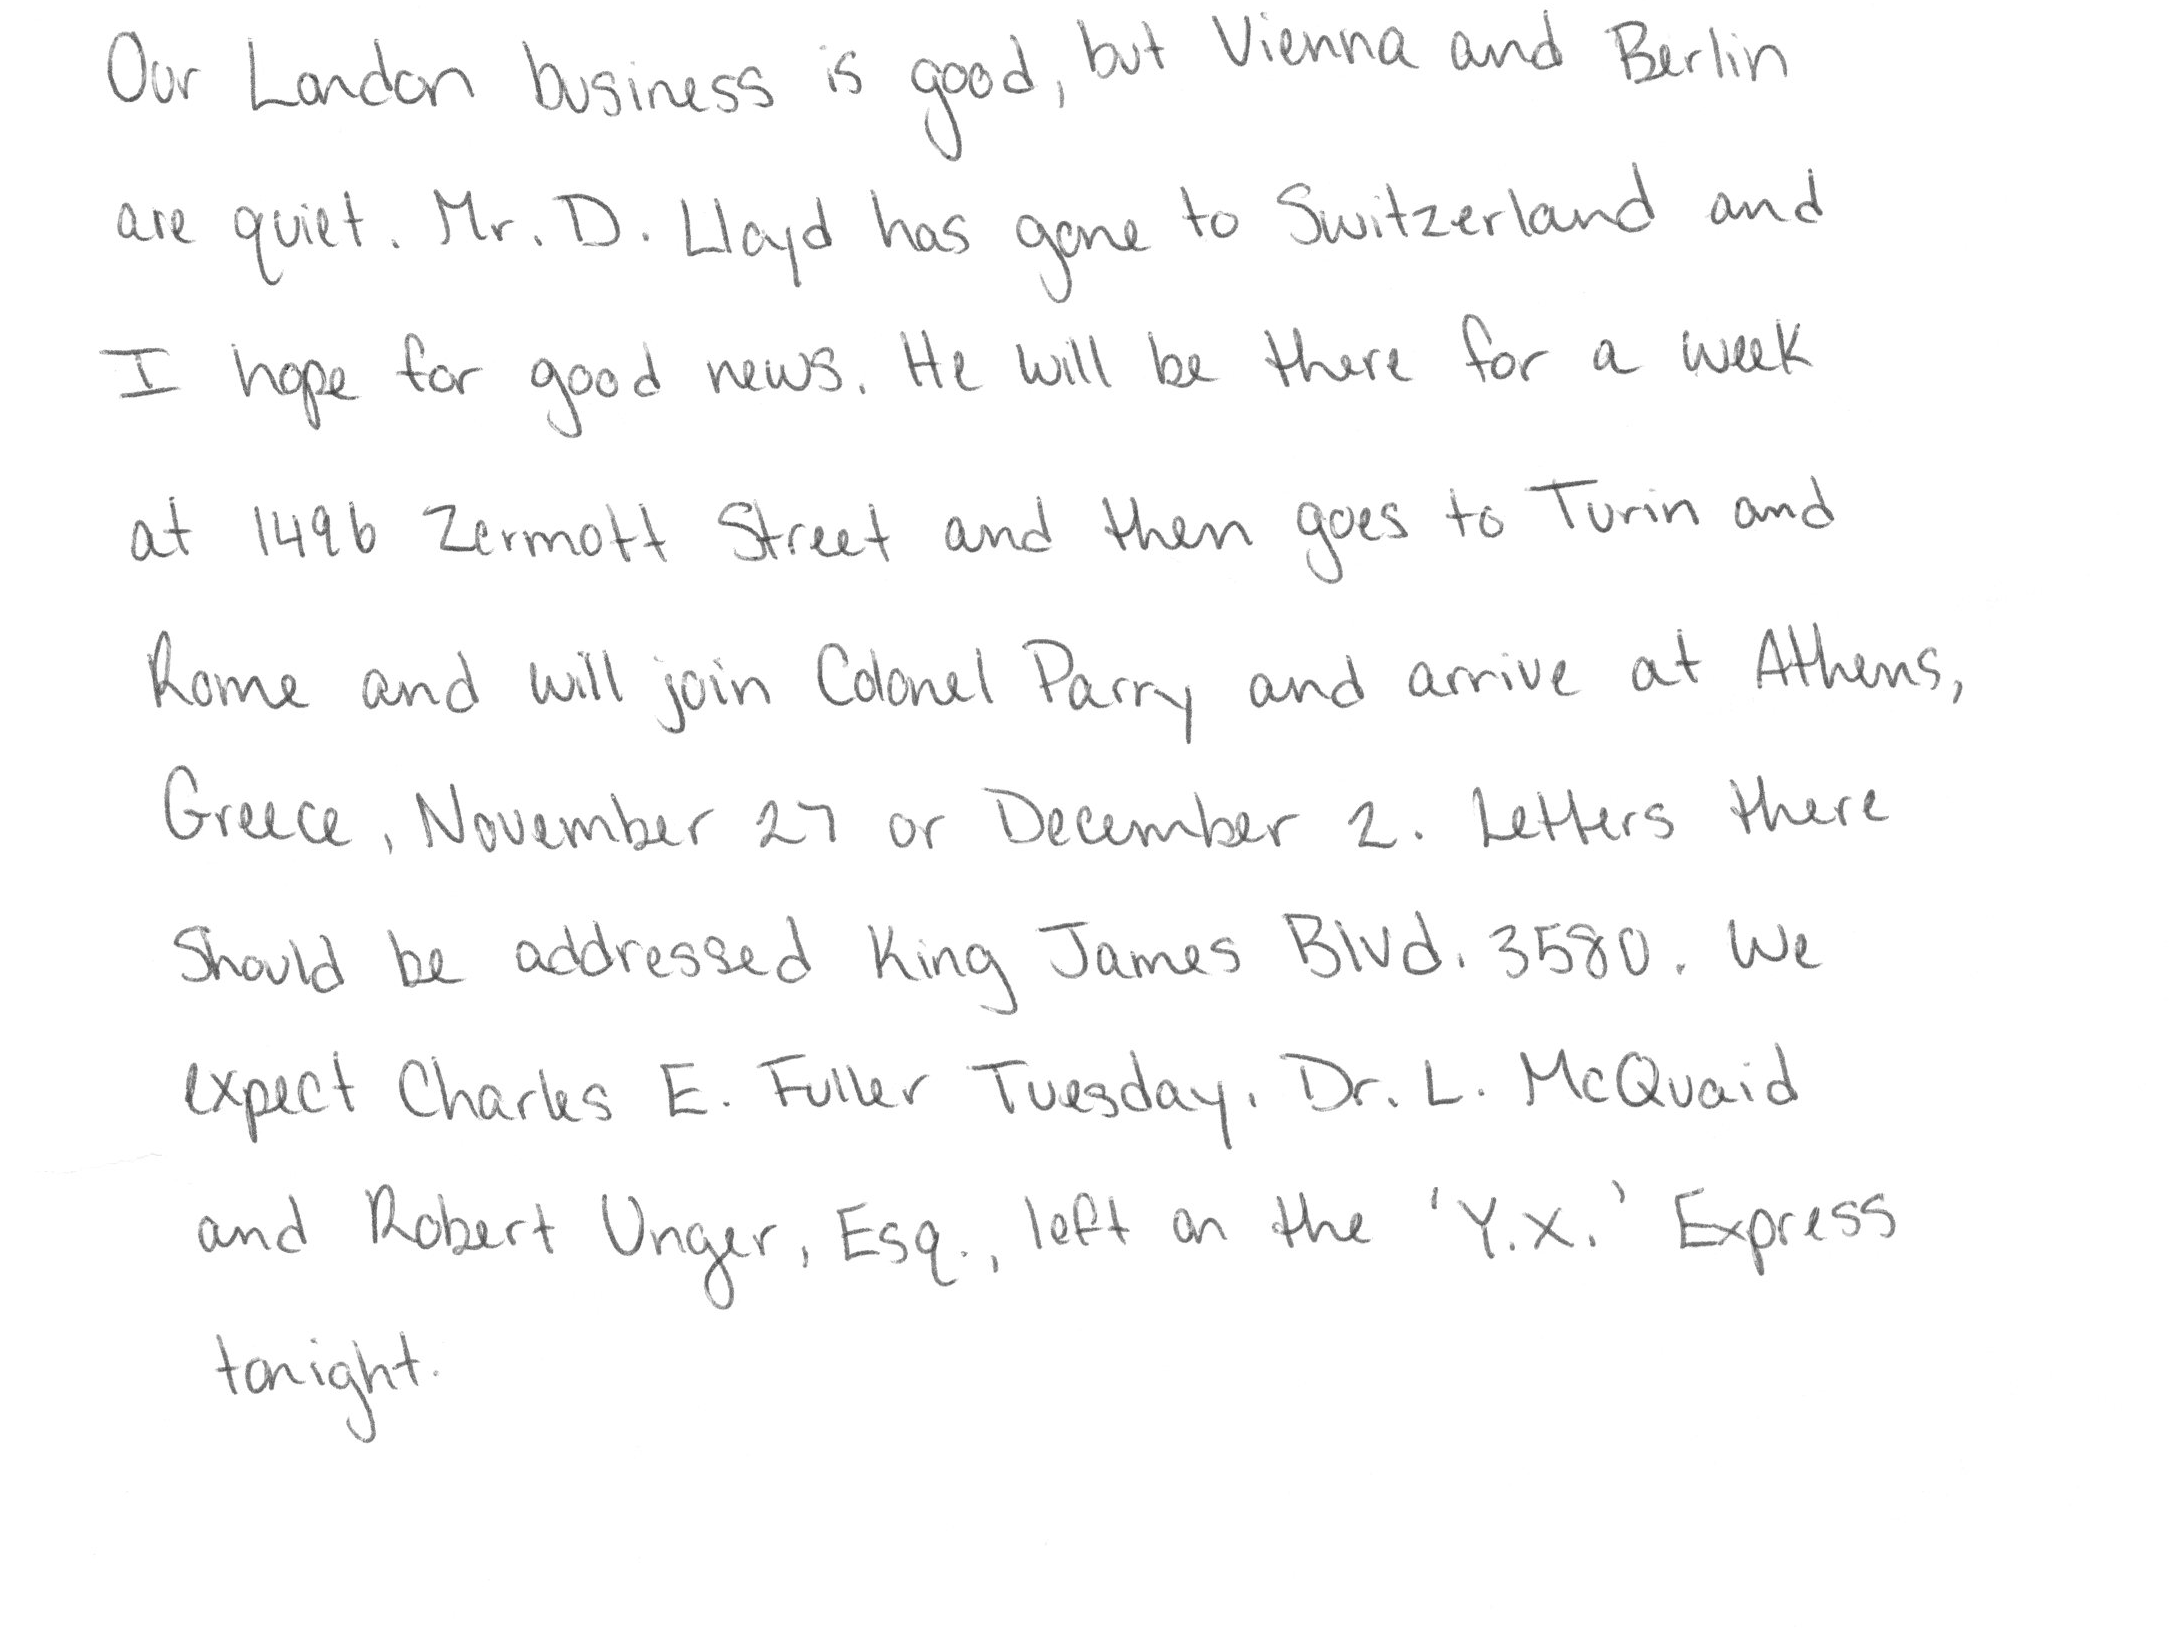 Our London business is good, but Vienna and Berlin
are quiet. Mr. D. Lloyd has gone to Switzerland and
I hope for good news. He will be there for a week
at 1496 Zermott Street and then goes to Turin and
Rome and will join Colonel Parry and arrive at Athens,
Greece, November 27 or December 2. Letters there
should be addressed King James Blvd. 3580. We
expect Charles E. Fuller Tuesday. Dr. L. McQuaid
and Robert Unger, Esq., left on the 'Y.X.' Express
tonight.